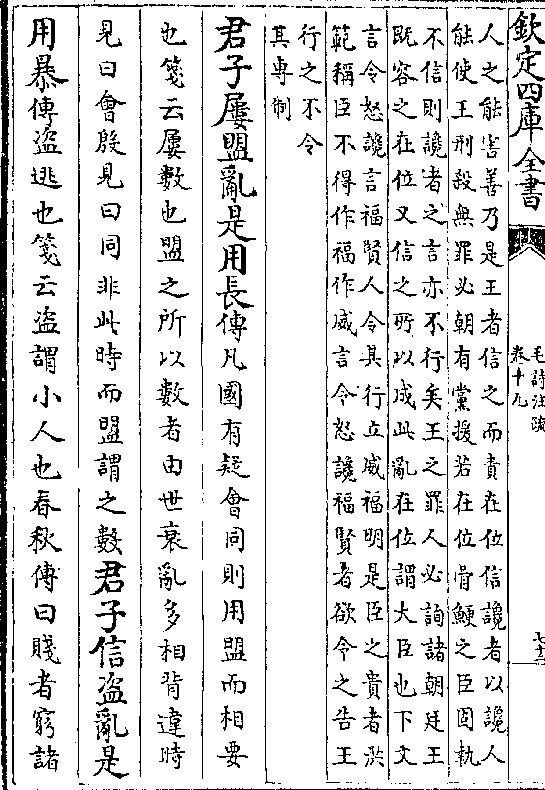 欽定四庫全書
毛詩注疏
卷十九
人之能害善乃是王者信之而責在位信讒者以讒人
能使王刑殺無罪必朝有黨援若在位骨鯁之臣固執
不信則讒者之言亦不行矣王之罪人必詢諸朝廷王
既容之在位又信之所以成此亂在位謂大臣也下文
言令怒讒言福賢人令其行立威福明是臣之貴者洪
範稱臣不得作福作威言令怒讒福賢者欲令之告王
行之不令
其專制
君子屢盟亂是用長傳凡國有疑會同則用盟而相要
也箋云屢數也盟之所以數者由世衰亂多相背違時
見曰會殷見曰同非此時而盟謂之數君子信盜亂是
用暴傳盜逃也箋云盜謂小人也春秋傳曰賤者窮諸